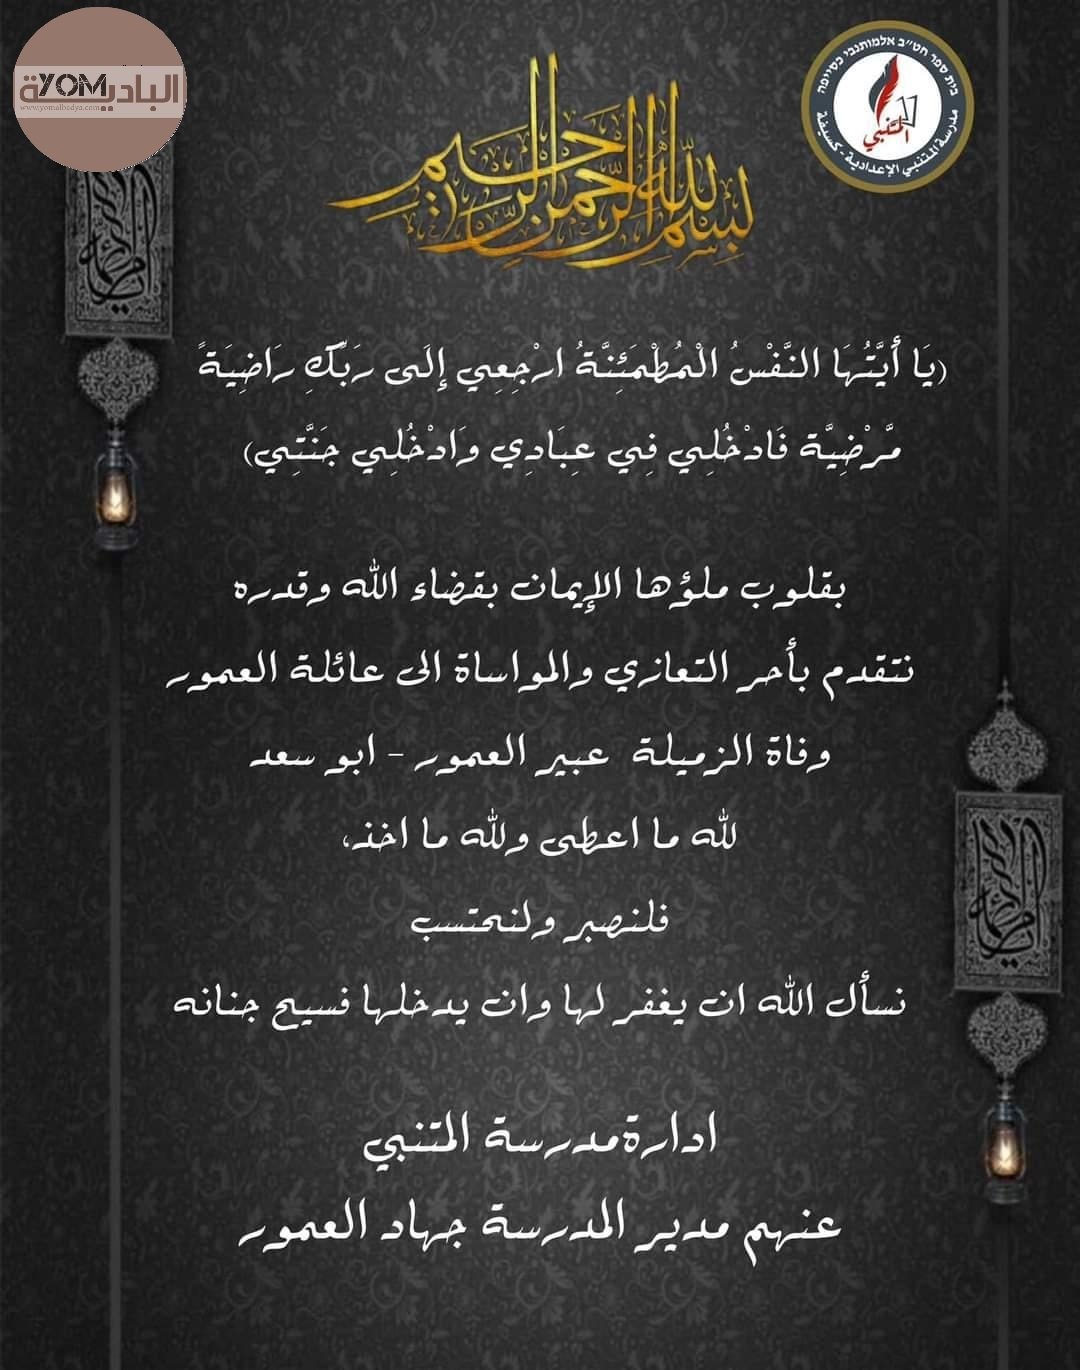 البادية YOM
www.yomalbadya.com
בית ספר חט"ב אלמותנבי כסייפה
المتنبي
مدرسة المتنبي الإعدادية - كسيفة
بسم الله الرحمن الرحيم
(يَا أَيَّتُهَا النَّفْسُ الْمُطْمَئِنَّةُ ارْجِعِي إِلَى رَبِّكِ رَاضِيَةً
مَّرْضِيَّة فَادْخُلِي فِي عِبَادِي وَادْخُلِي جَنَّتِي)
بقلوب ملؤها الإيمان بقضاء الله وقدره
نتقدم بأحر التعازي والمواساة الى عائلة العمور
وفاة الزميلة عبير العمور - ابو سعد
لله ما اعطى ولله ما اخذ،
فلنصبر ولنحتسب
نسأل الله ان يغفر لها وان يدخلها فسيح جنانه
ادارة مدرسة المتنبي
عنهم مدير المدرسة جهاد العمور